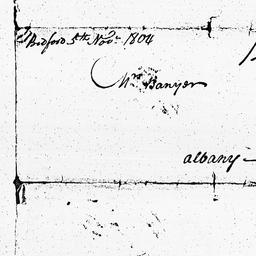 Bedford 5th Novr. 1804
Mrs Banyer
albany